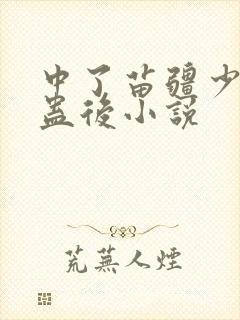 中了苗疆少
蠱後小說
荒蕪人煙